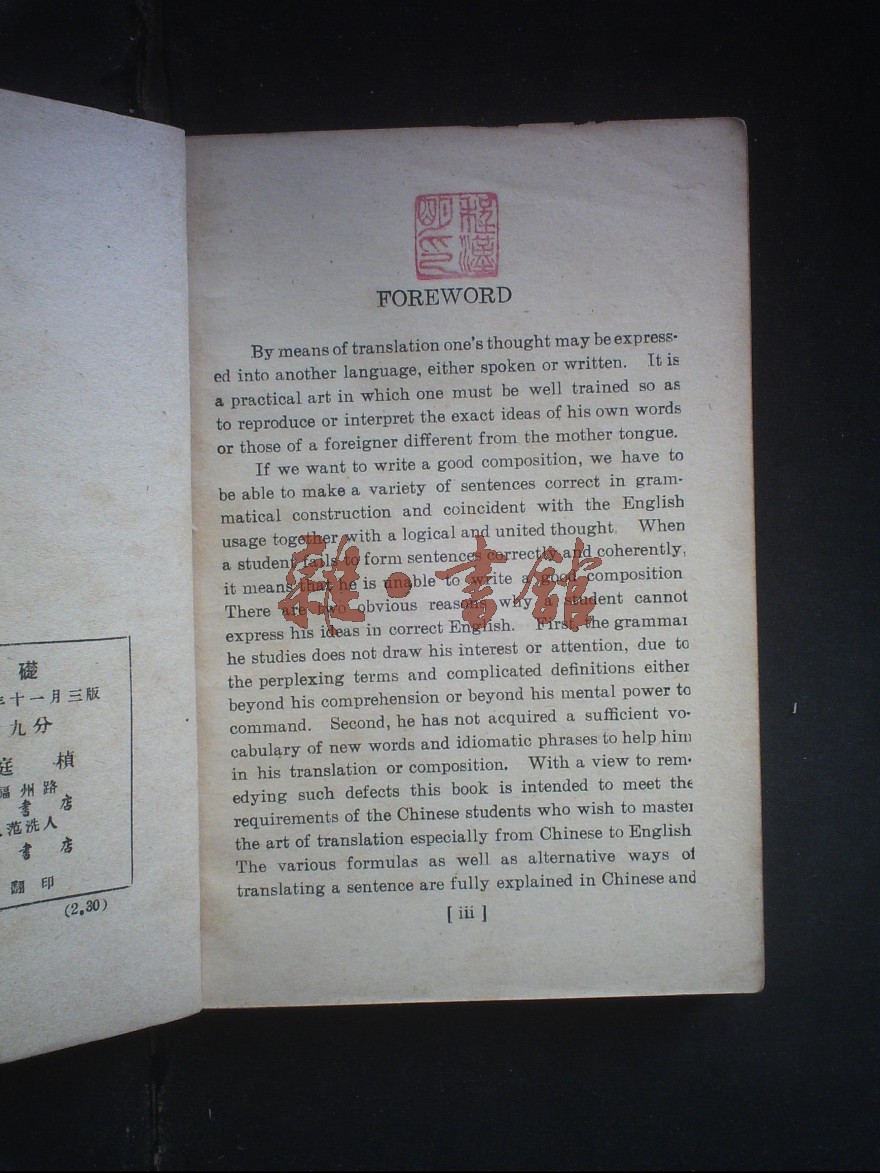 礎
年十一月三版
九分
庭楨
福州路
書店
范洗人
書店
翻印
(2.30)
FOREWORD
By means of translation one's thought may be express-
ed into another language, either spoken or written. It is
a practical art in which one must be well trained so as
to reproduce or interpret the exact ideas of his own words
or those of a foreigner different from the mother tongue.
If we want to write a good composition, we have to
be able to make a variety of sentences correct in gram-
matical construction and coincident with the English
usage together with a logical and united thought. When
a student fails to form sentences correctly and coherently,
it means that he is unable to write a good composition
There are two obvious reasons why a student cannot
express his ideas in correct English. First, the grammar
he studies does not draw his interest or attention, due to
the perplexing terms and complicated definitions either
beyond his comprehension or beyond his mental power to
command. Second, he has not acquired a sufficient vo-
cabulary of new words and idiomatic phrases to help him
in his translation or composition. With a view to rem-
edying such defects this book is intended to meet the
requirements of the Chinese students who wish to master
the art of translation especially from Chinese to English
The various formulas as well as alternative ways of
translating a sentence are fully explained in Chinese and
[ iii ]
雜·書館